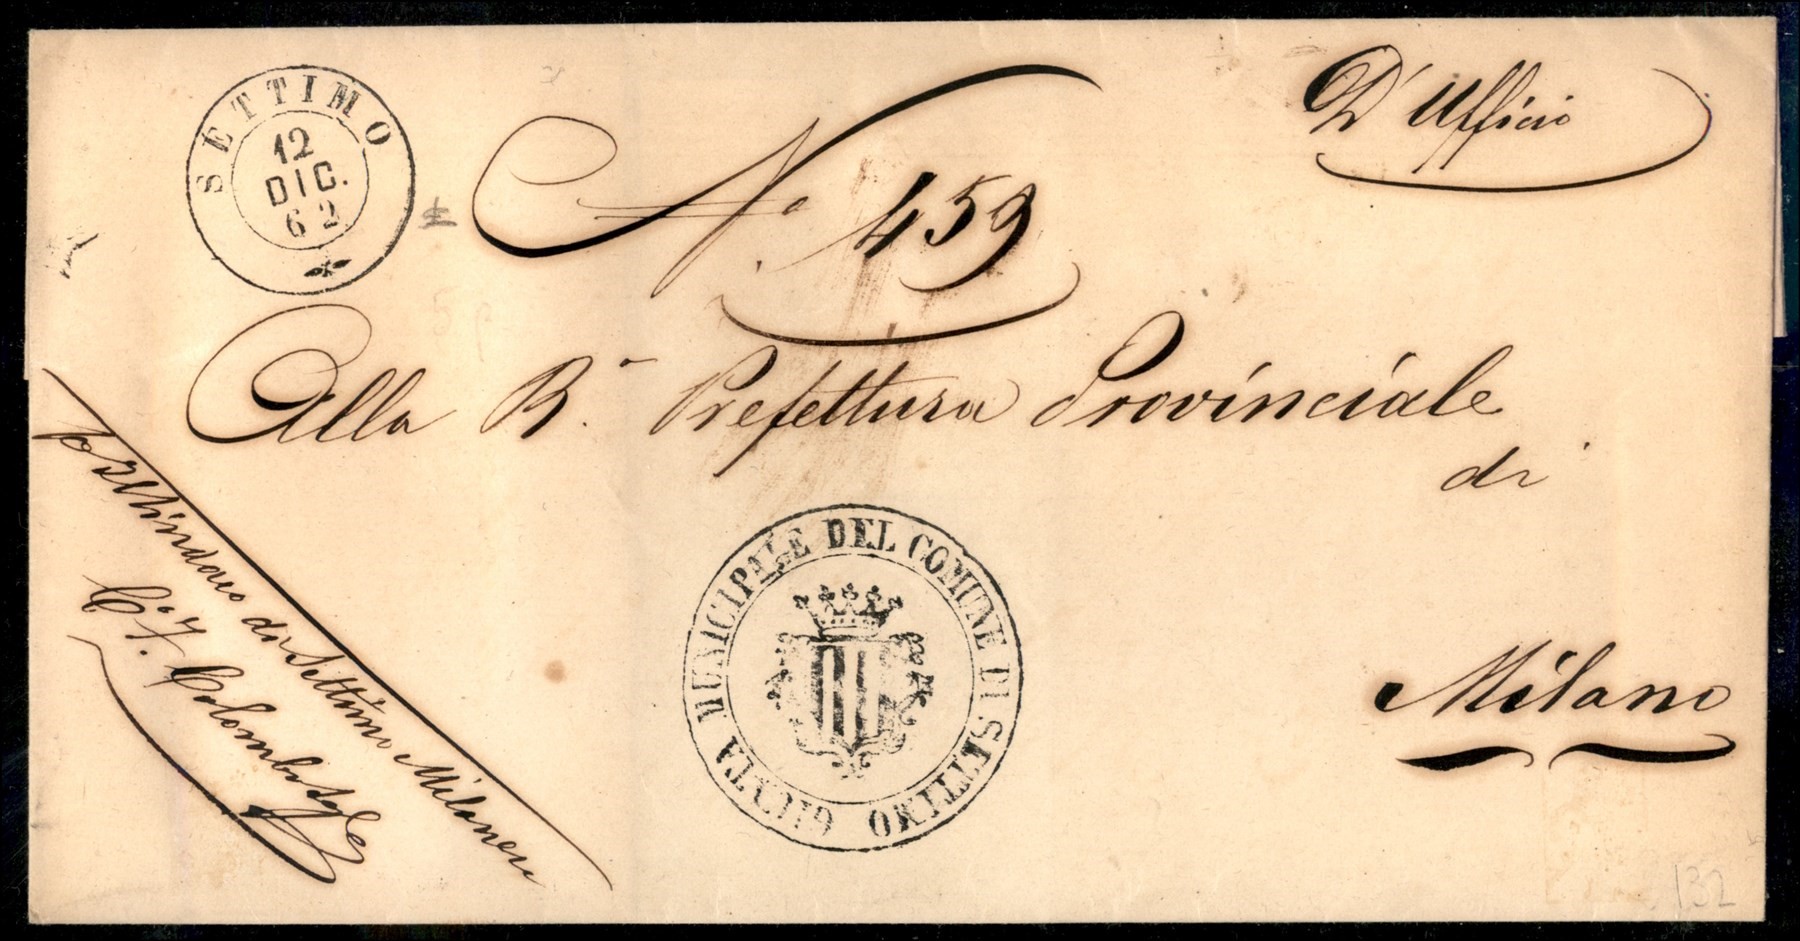 SETTIMO
12
DIC.
62
D'Ufficio
N.° 459
Alla R.ª Prefettura Provinciale
di
Milano
GIUNTA MUNICIPALE DEL COMUNE DI SETTIMO
di Settimo Milanese
Colombo
132